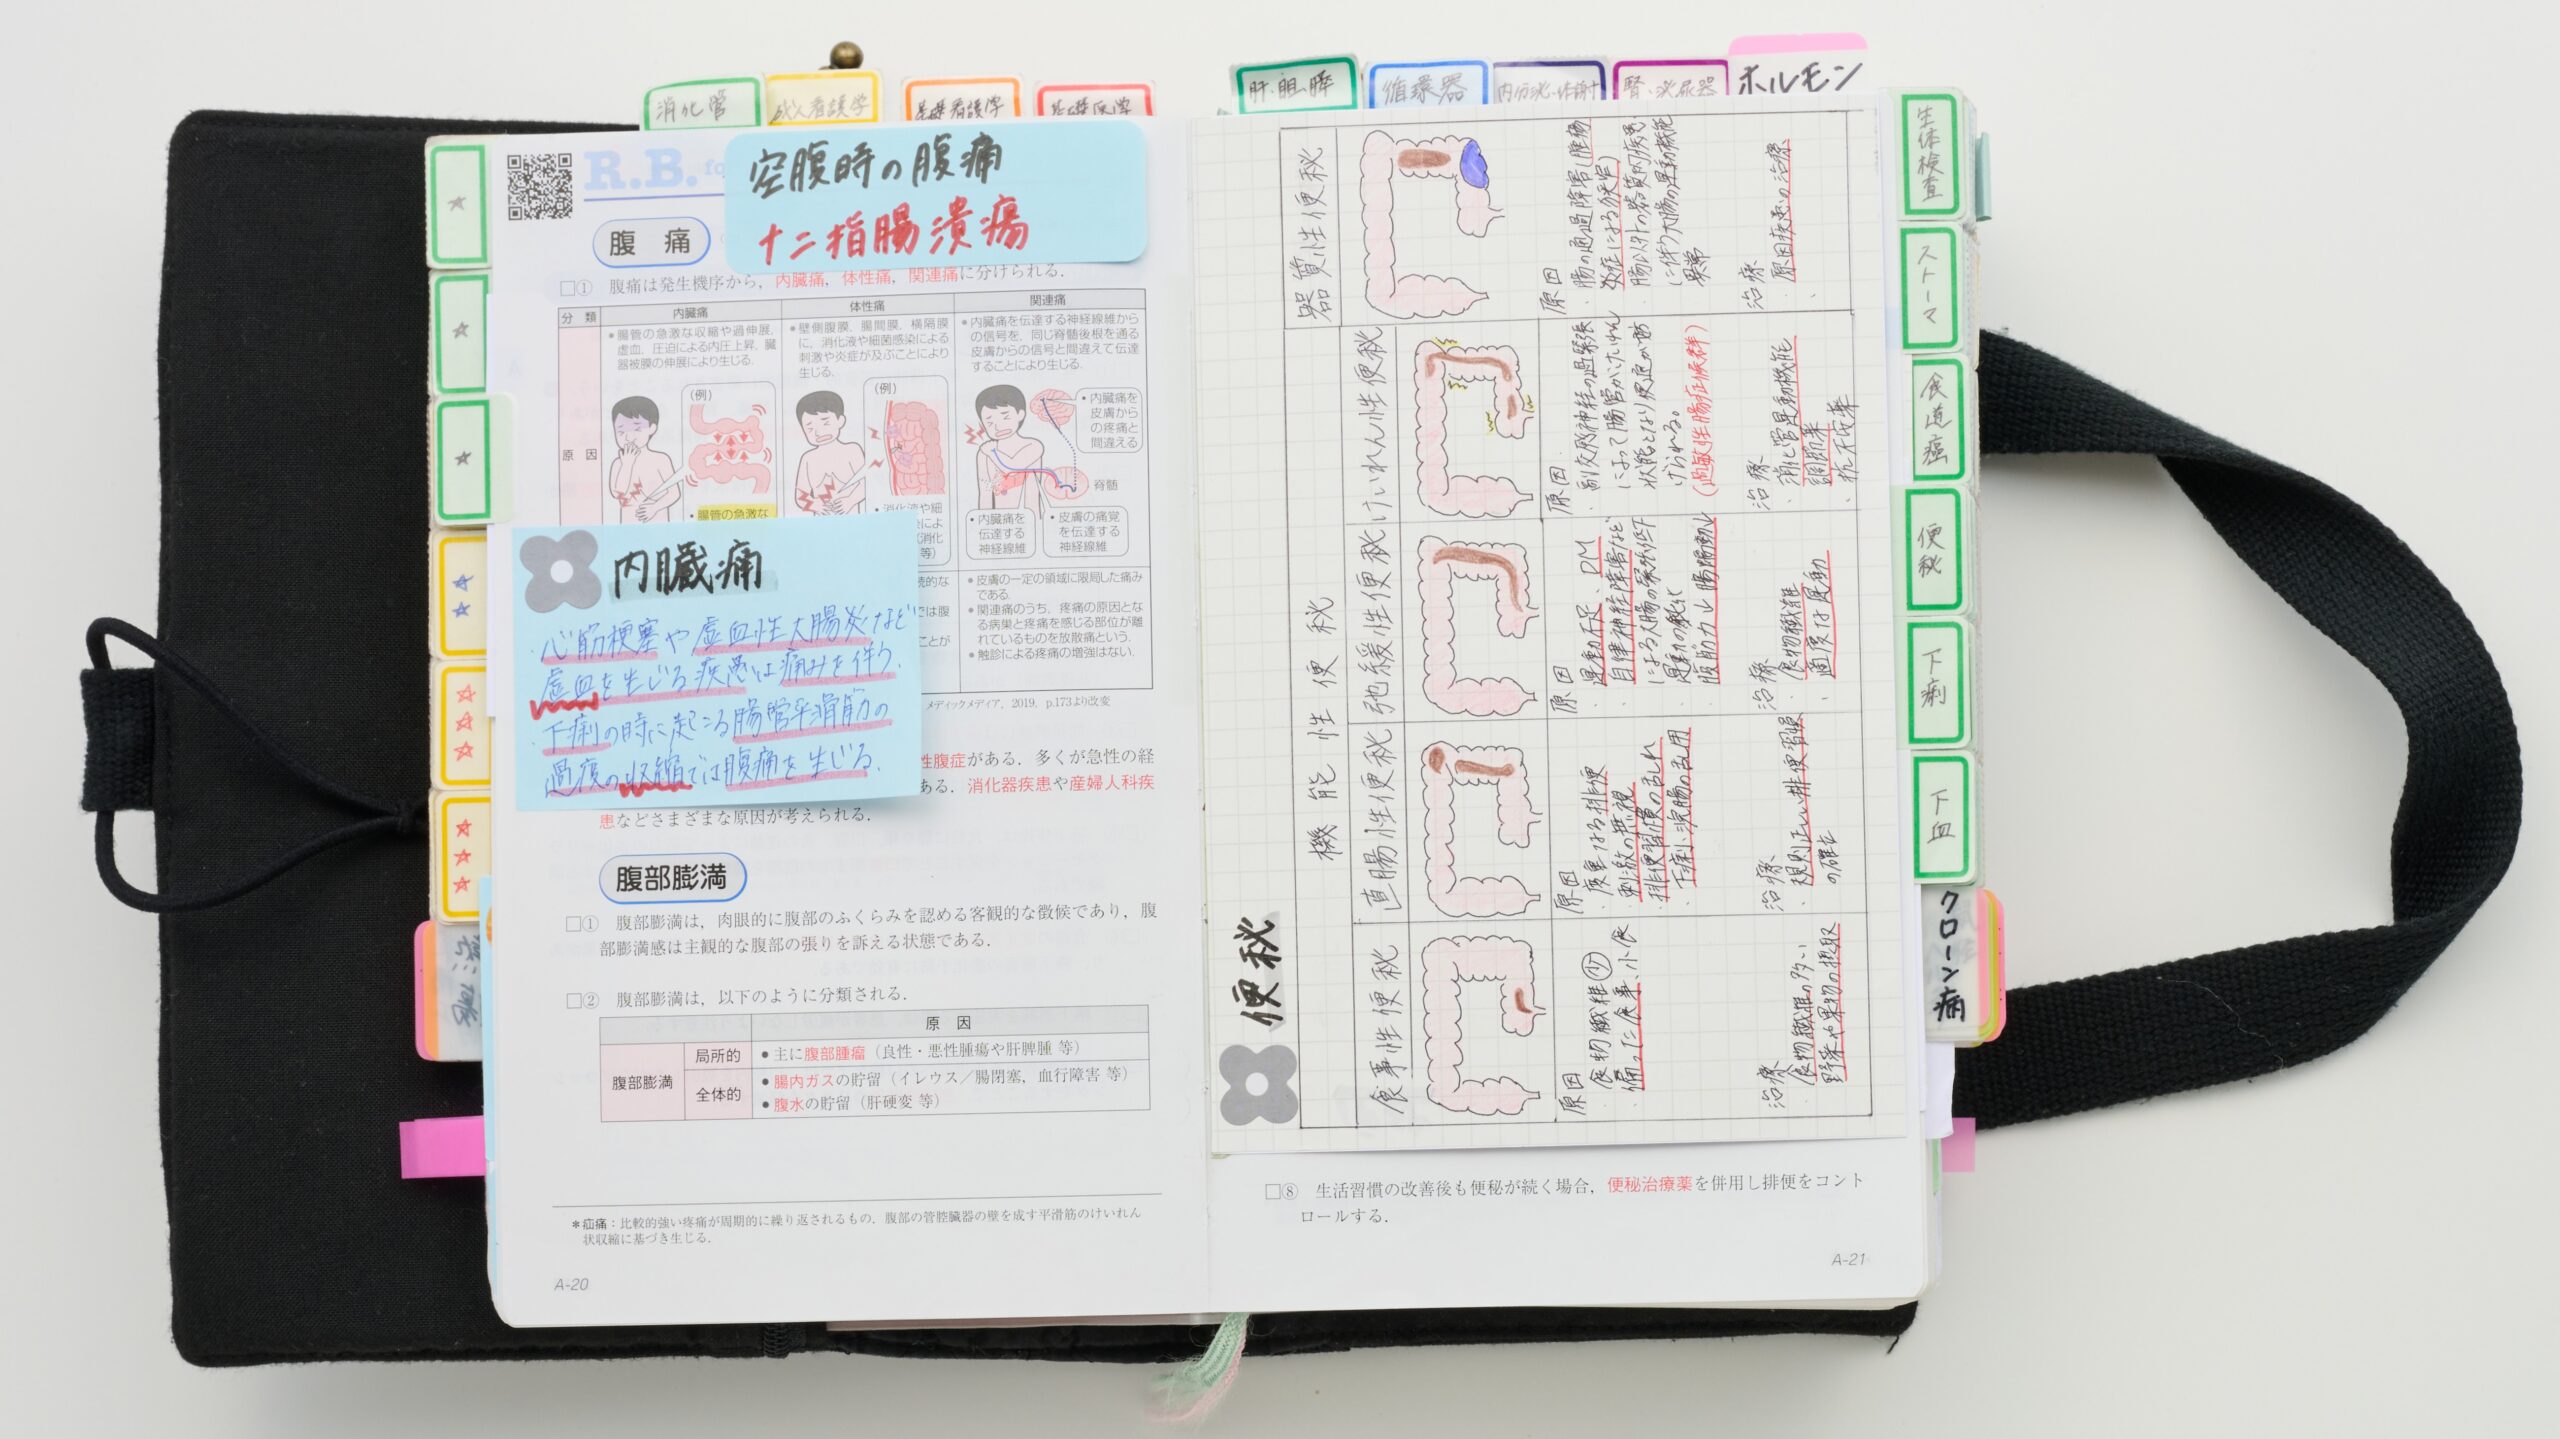 消化管
成人看護学
基礎看護学
基礎医学
肝・胆・膵
循環器
内分泌・代謝
腎・泌尿器
ホルモン
R.B. fo
空腹時の腹痛
十二指腸潰瘍
腹 痛
□① 腹痛は発生機序から，内臓痛，体性痛，関連痛に分けられる．
分 類
内臓痛
体性痛
関連痛
原 因
●腸管の急激な収縮や過伸展，
虚血，圧迫による内圧上昇，臓
器被膜の伸展により生じる．
●壁側腹膜，腸間膜，横隔膜
に，消化液や細菌感染による
刺激や炎症が及ぶことにより
生じる．
●内臓痛を伝達する神経線維から
の信号を，同じ脊髄後根を通る
皮膚からの信号と間違えて伝達
することにより生じる．
（例）
（例）
・内臓痛を
皮膚から
の疼痛と
間違える
脊髄
・腸管の急激な
・消化液や細
・内臓痛を
伝達する
神経線維
・皮膚の痛覚
を伝達する
神経線維
●皮膚の一定の領域に限局した痛み
である．
●関連痛のうち，疼痛の原因とな
る病巣と疼痛を感じる部位が離
れているものを放散痛という．
●触診による疼痛の増強はない．
メディックメディア，2019，p.173より改変
内臓痛
・心筋梗塞や虚血性大腸炎など
虚血を生じる疾患は痛みを伴う．
・下痢の時に起こる腸管平滑筋の
過度の収縮では腹痛を生じる．
性腹症がある．多くが急性の経
ある．消化器疾患や産婦人科疾
患などさまざまな原因が考えられる．
腹部膨満
□① 腹部膨満は，肉眼的に腹部のふくらみを認める客観的な徴候であり，腹
部膨満感は主観的な腹部の張りを訴える状態である．
□② 腹部膨満は，以下のように分類される．
原 因
腹部膨満
局所的
●主に腹部腫瘤（良性・悪性腫瘍や肝脾腫 等）
全体的
●腸内ガスの貯留（イレウス／腸閉塞，血行障害 等）
●腹水の貯留（肝硬変 等）
＊疝痛：比較的強い疼痛が周期的に繰り返されるもの．腹部の管腔臓器の壁を成す平滑筋のけいれん
状収縮に基づき生じる．
A-20
便秘
機能性便秘
食事性便秘
原因
・食物繊維少
・偏った食事、小食
治療
・食物繊維の多い
野菜や果物の摂取
直腸性便秘
原因
・度重なる排便
刺激の無視
・排便習慣の乱れ
・下痢、浣腸の乱用
治療
・規則正しい排便習慣
の確立
弛緩性便秘
原因
・運動不足、DM
自律神経障害など
による大腸の緊張低下
運動の鈍化
・腹筋力↓ 腸蠕動↓
治療
・食物繊維
・適度な運動
けいれん性便秘
原因
副交感神経の過緊張
によって腸管がけいれん
状態となり便通が妨
げられる。
（過敏性腸症候群）
治療
・消化管運動機能
調節薬
・抗不安薬
器質性便秘
原因
・腸の通過障害（腫瘍
炎症による狭窄）
・腸以外の器質的疾患
に伴う大腸の運動機能
異常
治療
・原因疾患の治療
□⑧ 生活習慣の改善後も便秘が続く場合，便秘治療薬を併用し排便をコント
ロールする．
A-21
生体検査
ストーマ
食道癌
便秘
下痢
下血
クローン病